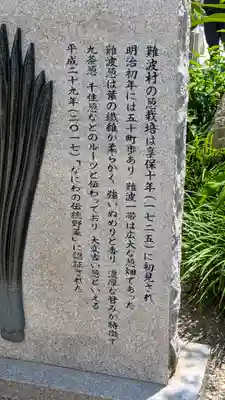 難波村の葱栽培は享保十年(一七二五)に初見され
明治初年には五十町歩あり 難波一帯は広大な葱畑であった
難波葱は葉の繊維が柔らかく 強いぬめりと香り 濃厚な甘みが特徴で
九条葱 千住葱などのルーツと伝わっており 大変古い葱といえる
平成二十九年(二〇一七)、「なにわの伝統野菜」に認証された